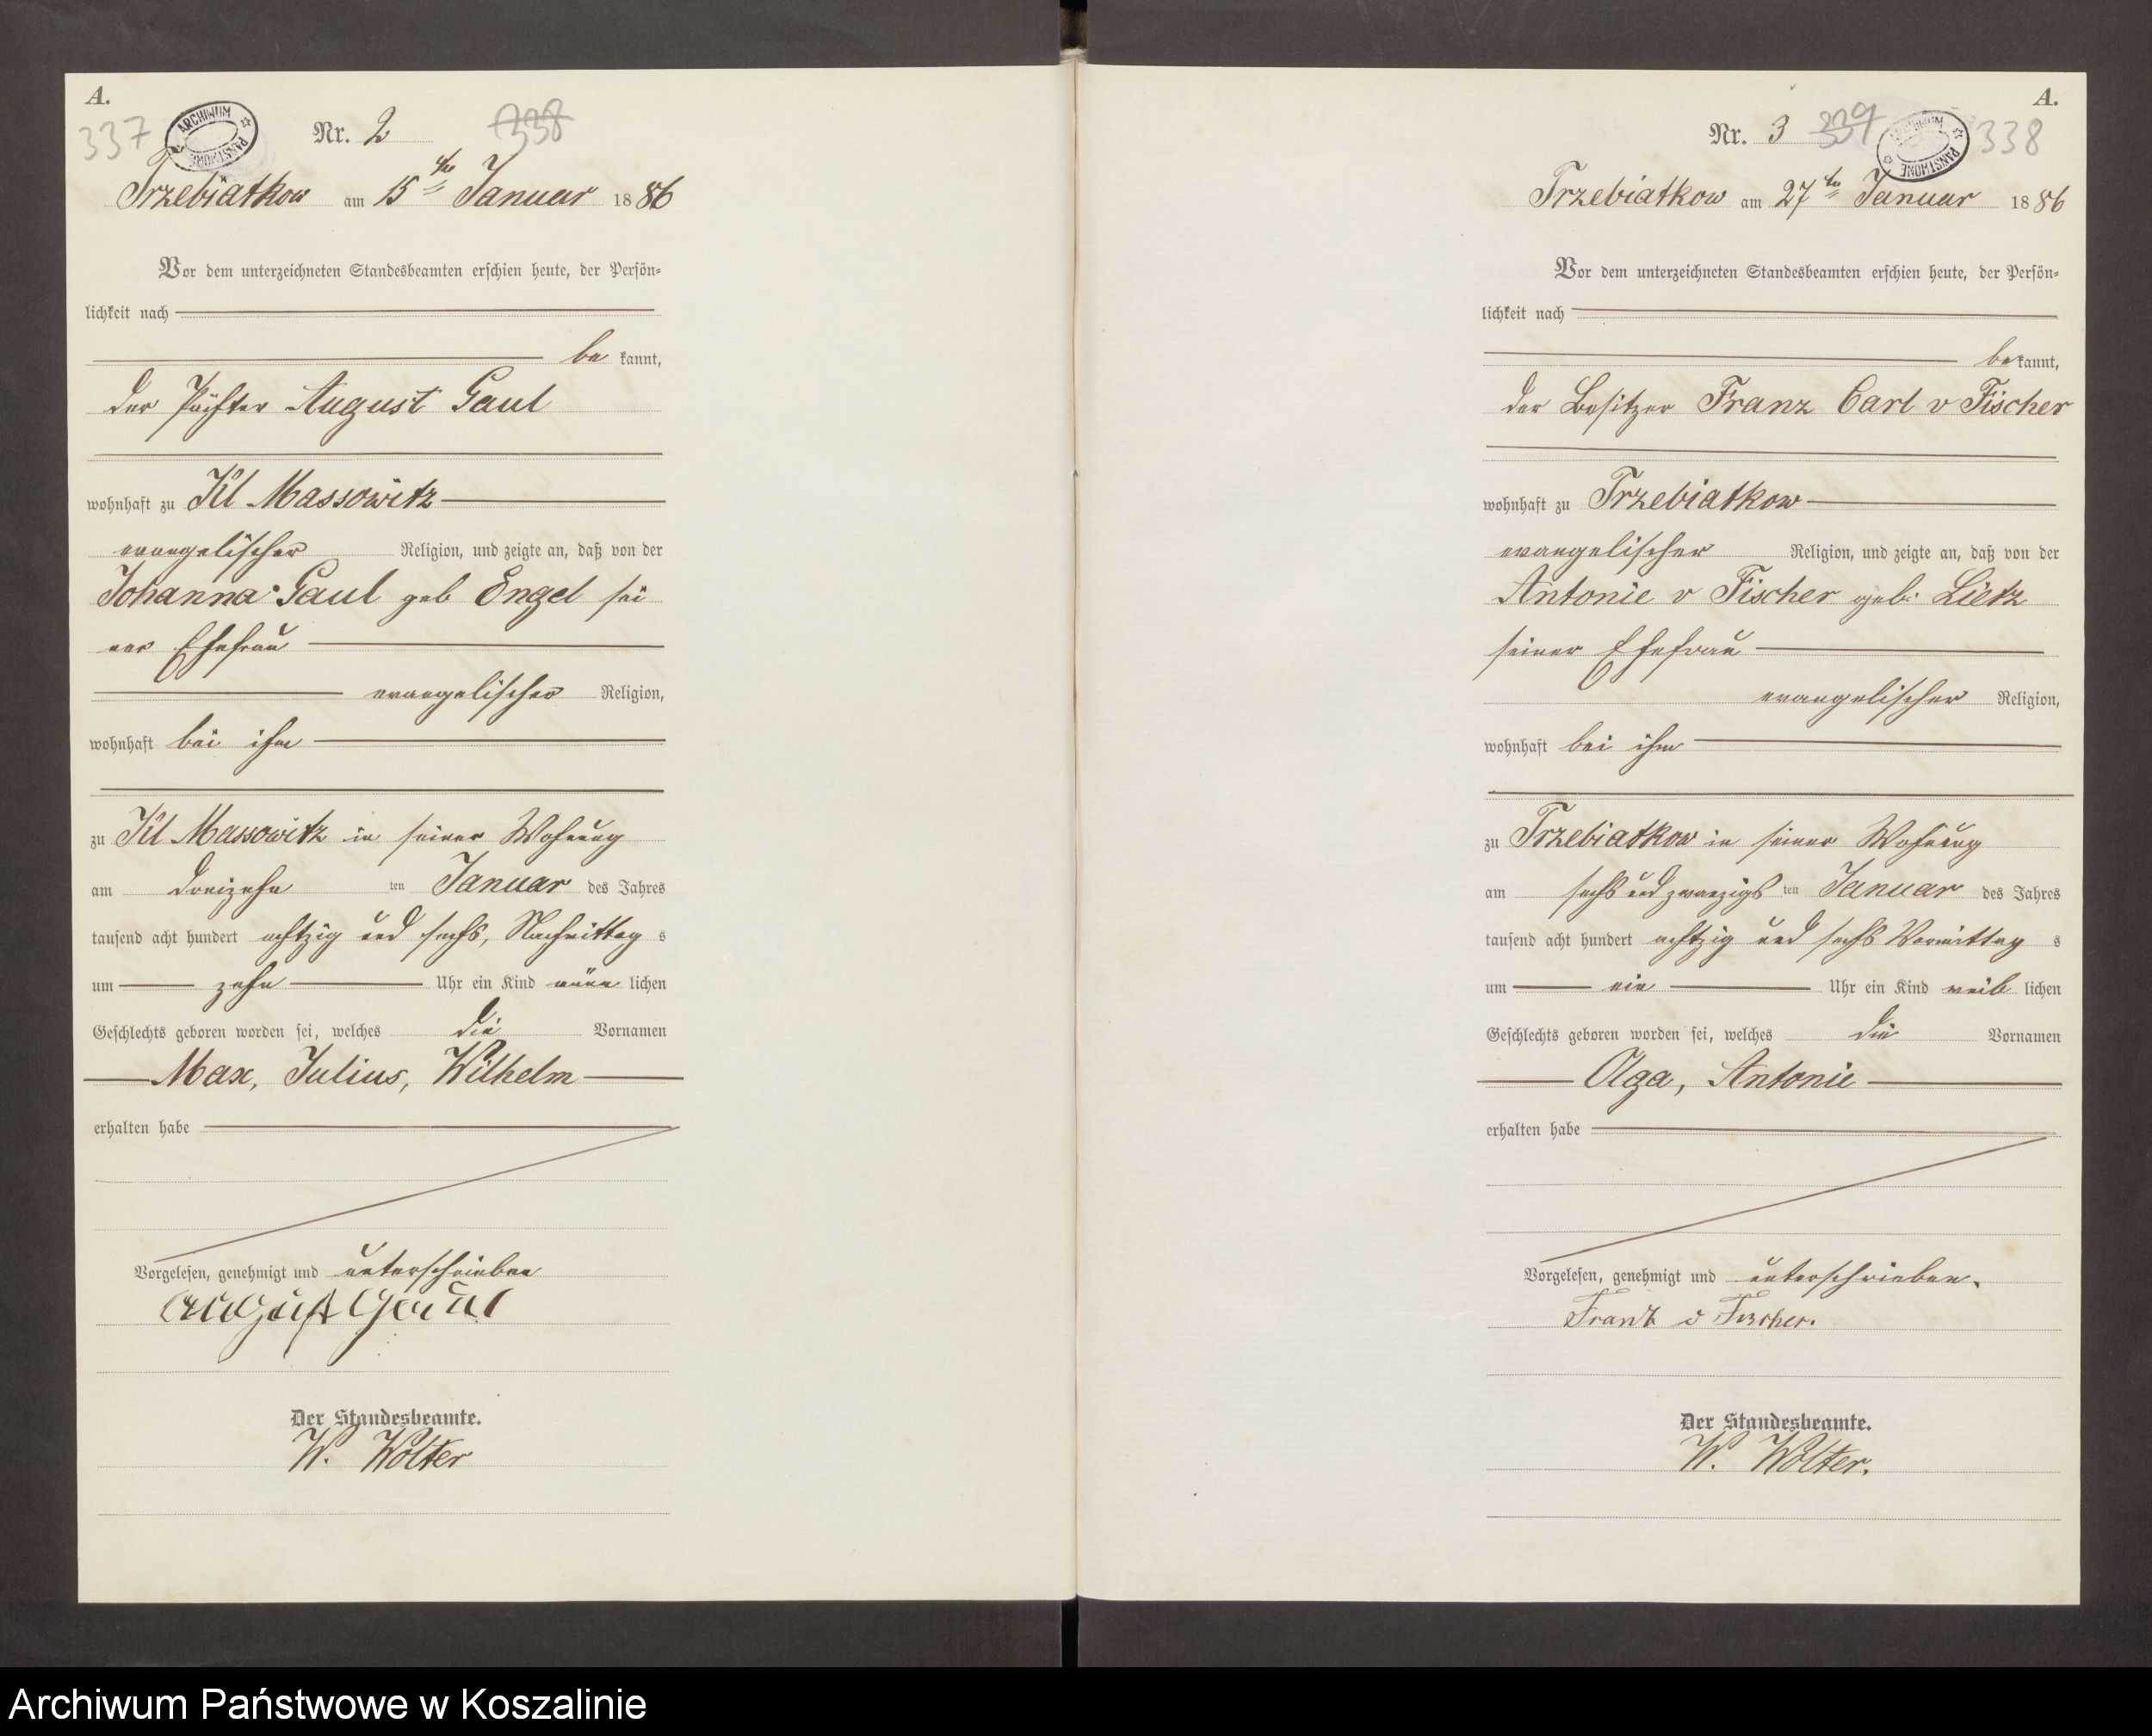 A.
337
ARCHIWUM PAŃSTWOWE
Nr. 2
338
Trzebiatkow am 15ten Januar 1886
Vor dem unterzeichneten Standesbeamten erschien heute, der Persön-
lichkeit nach
be kannt,
der Pächter August Gaul
wohnhaft zu Kl Massowitz
evangelischer Religion, und zeigte an, daß von der
Johanna Gaul geb Engel sei
ner Ehefrau
evangelischer Religion,
wohnhaft bei ihm
zu Kl Massowitz in seiner Wohnung
am dreizehn ten Januar des Jahres
tausend acht hundert achtzig und sechs, Nachmittag s
um zehn Uhr ein Kind männ lichen
Geschlechts geboren worden sei, welches die Vornamen
Max, Julius, Wilhelm
erhalten habe
Vorgelesen, genehmigt und unterschrieben
August Gaul
Der Standesbeamte.
W. Wolter
A.
Nr. 3
339
ARCHIWUM PAŃSTWOWE
338
Trzebiatkow am 27ten Januar 1886
Vor dem unterzeichneten Standesbeamten erschien heute, der Persön-
lichkeit nach
be kannt,
der Besitzer Franz Carl v Fischer
wohnhaft zu Trzebiatkow
evangelischer Religion, und zeigte an, daß von der
Antonie v Fischer geb. Lietz
seiner Ehefrau
evangelischer Religion,
wohnhaft bei ihm
zu Trzebiatkow in seiner Wohnung
am sechs und zwanzigs ten Januar des Jahres
tausend acht hundert achtzig und sechs Vormittag s
um ein Uhr ein Kind weib lichen
Geschlechts geboren worden sei, welches die Vornamen
Olga, Antonie
erhalten habe
Vorgelesen, genehmigt und unterschrieben.
Franz v Fischer.
Der Standesbeamte.
W. Wolter.
Archiwum Państwowe w Koszalinie